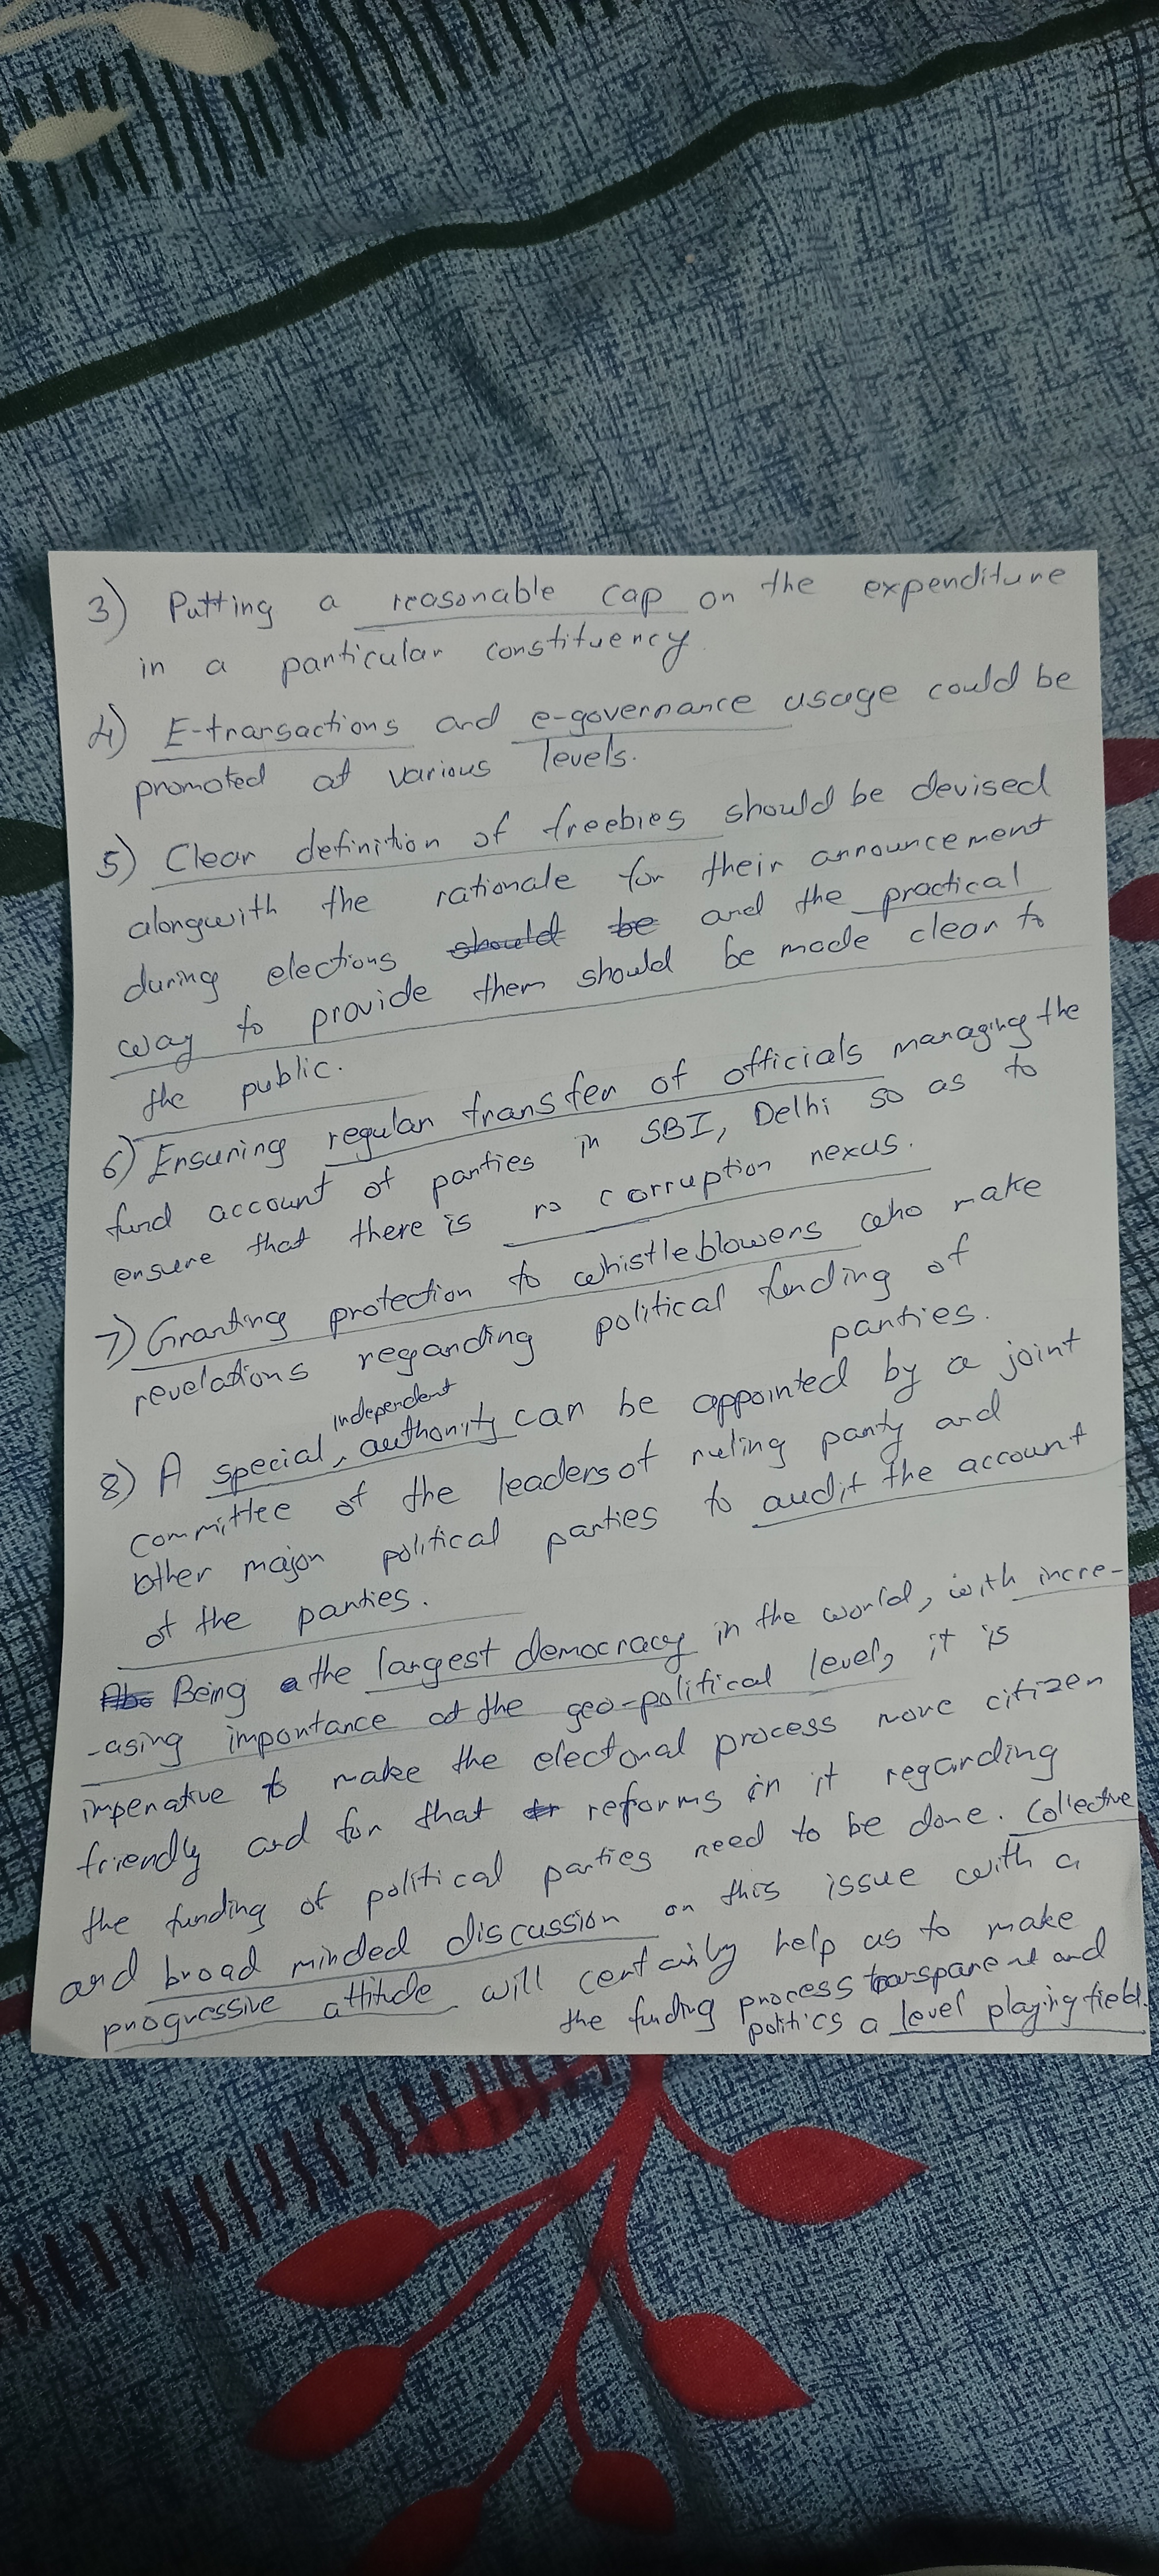 3) Putting a reasonable cap on the expenditure
in a particular constituency.
4) E-transactions and e-governance usage could be
promoted at various levels.
5) Clear definition of freebies should be devised
alongwith the rationale for their announcement
during elections should be and the practical
way to provide them should be made clear to
the public.
6) Ensuring regular transfer of officials managing the
fund account of parties in SBI, Delhi so as to
ensure that there is no corruption nexus.
7) Granting protection to whistleblowers who make
revelations regarding political funding of
parties.
8) A special, independent authority can be appointed by a joint
committee of the leaders of ruling party and
other major political parties to audit the account
of the parties.
Being the largest democracy in the world, with incre-
-asing importance at the geo-political level, it is
imperative to make the electoral process more citizen
friendly and for that reforms in it regarding
the funding of political parties need to be done. Collective
and broad minded discussion on this issue with a
progressive attitude will certainly help us to make
the funding process transparent and
politics a level playing field.